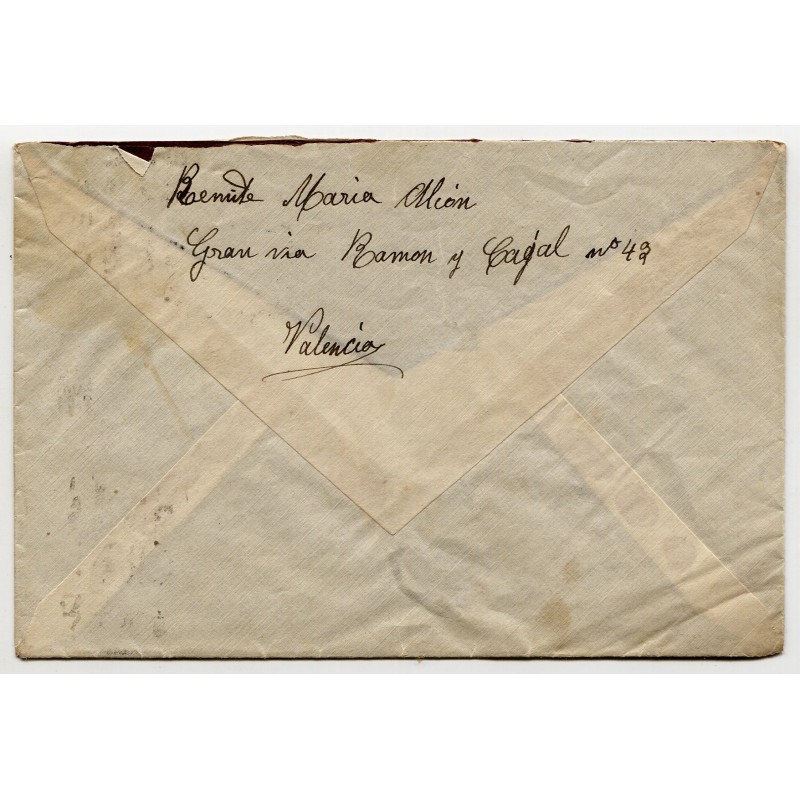 Remite Maria Alión
Gran via Ramon y Cagal nº 43
Valencia